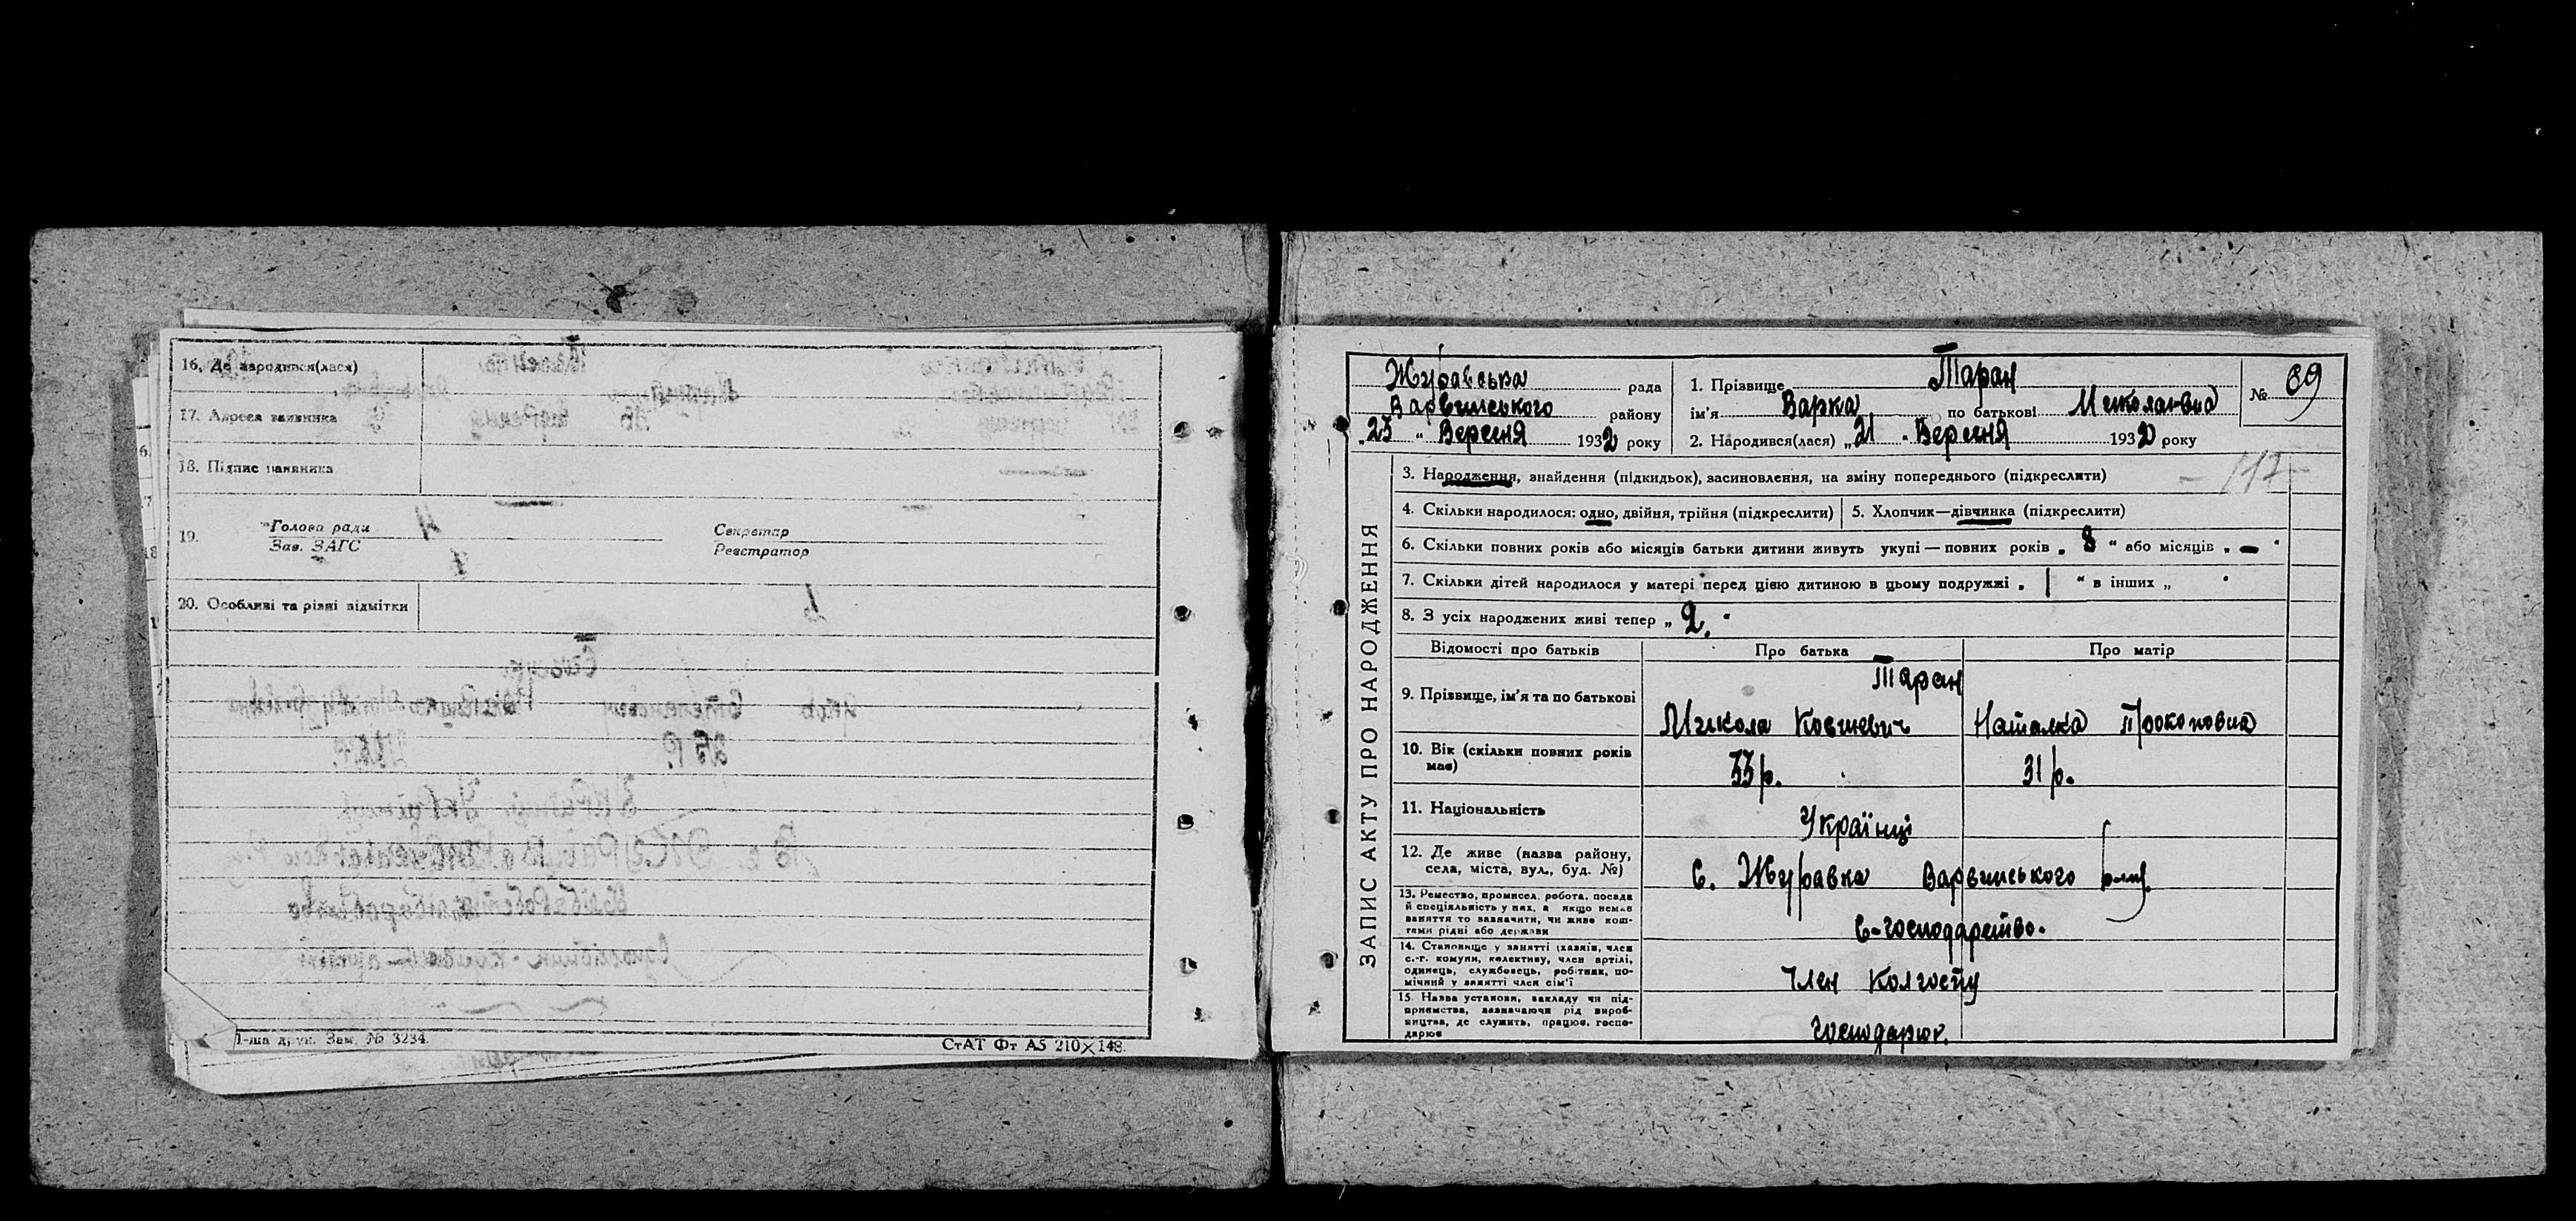 16. Де народився(лася)
17. Адреса заявника
18. Підпис заявника
19. Голова ради
Зав. ЗАГС
Секретар
Реєстратор
20. Особливі та різні відмітки
1-ша друк. Зам. № 3234.
СтАТ Фт А5 210×148.
ЗАПИС АКТУ ПРО НАРОДЖЕННЯ
Журавська рада
Варвинського району
"23" Вересня 1932 року
1. Прізвище Таран
ім'я Варка по батькові Миколаївна
2. Народився(лася) "21" Вересня 1932 року
№ 69
117
3. Народження, знайдення (підкидьок), засиновлення, на зміну попереднього (підкреслити)
4. Скільки народилося: одно, двійня, трійня (підкреслити)
5. Хлопчик—дівчинка (підкреслити)
6. Скільки повних років або місяців батьки дитини живуть укупі — повних років „ 8 “ або місяців „ — “
7. Скільки дітей народилося у матері перед цією дитиною в цьому подружжі „ 1 “ в інших „ “
8. З усіх народжених живі тепер „ 2. “
Відомості про батьків
Про батька
Про матір
9. Прізвище, ім'я та по батькові
Таран
Микола
Наталка Прокоповна
10. Вік (скільки повних років має)
33 р.
31 р.
11. Національність
Українці
12. Де живе (назва району,
села, міста, вул., буд. №)
с. Журавка Варвинського
13. Ремество, промисел, робота, посада
й спеціяльність у них, а якщо немає
заняття то зазначити, чи живе кош-
тами рідні або держави
с-господарство.
14. Становище у занятті (хазяїн, член
с.-г. комуни, колективу, член артілі,
одинець, службовець, робітник, по-
мічний у занятті член сім'ї
Член Колгоспу
15. Назва установи, закладу чи під-
приємства, зазначаючи рід вироб-
ництва, де служить, працює, госпо-
дарює
Господарює.